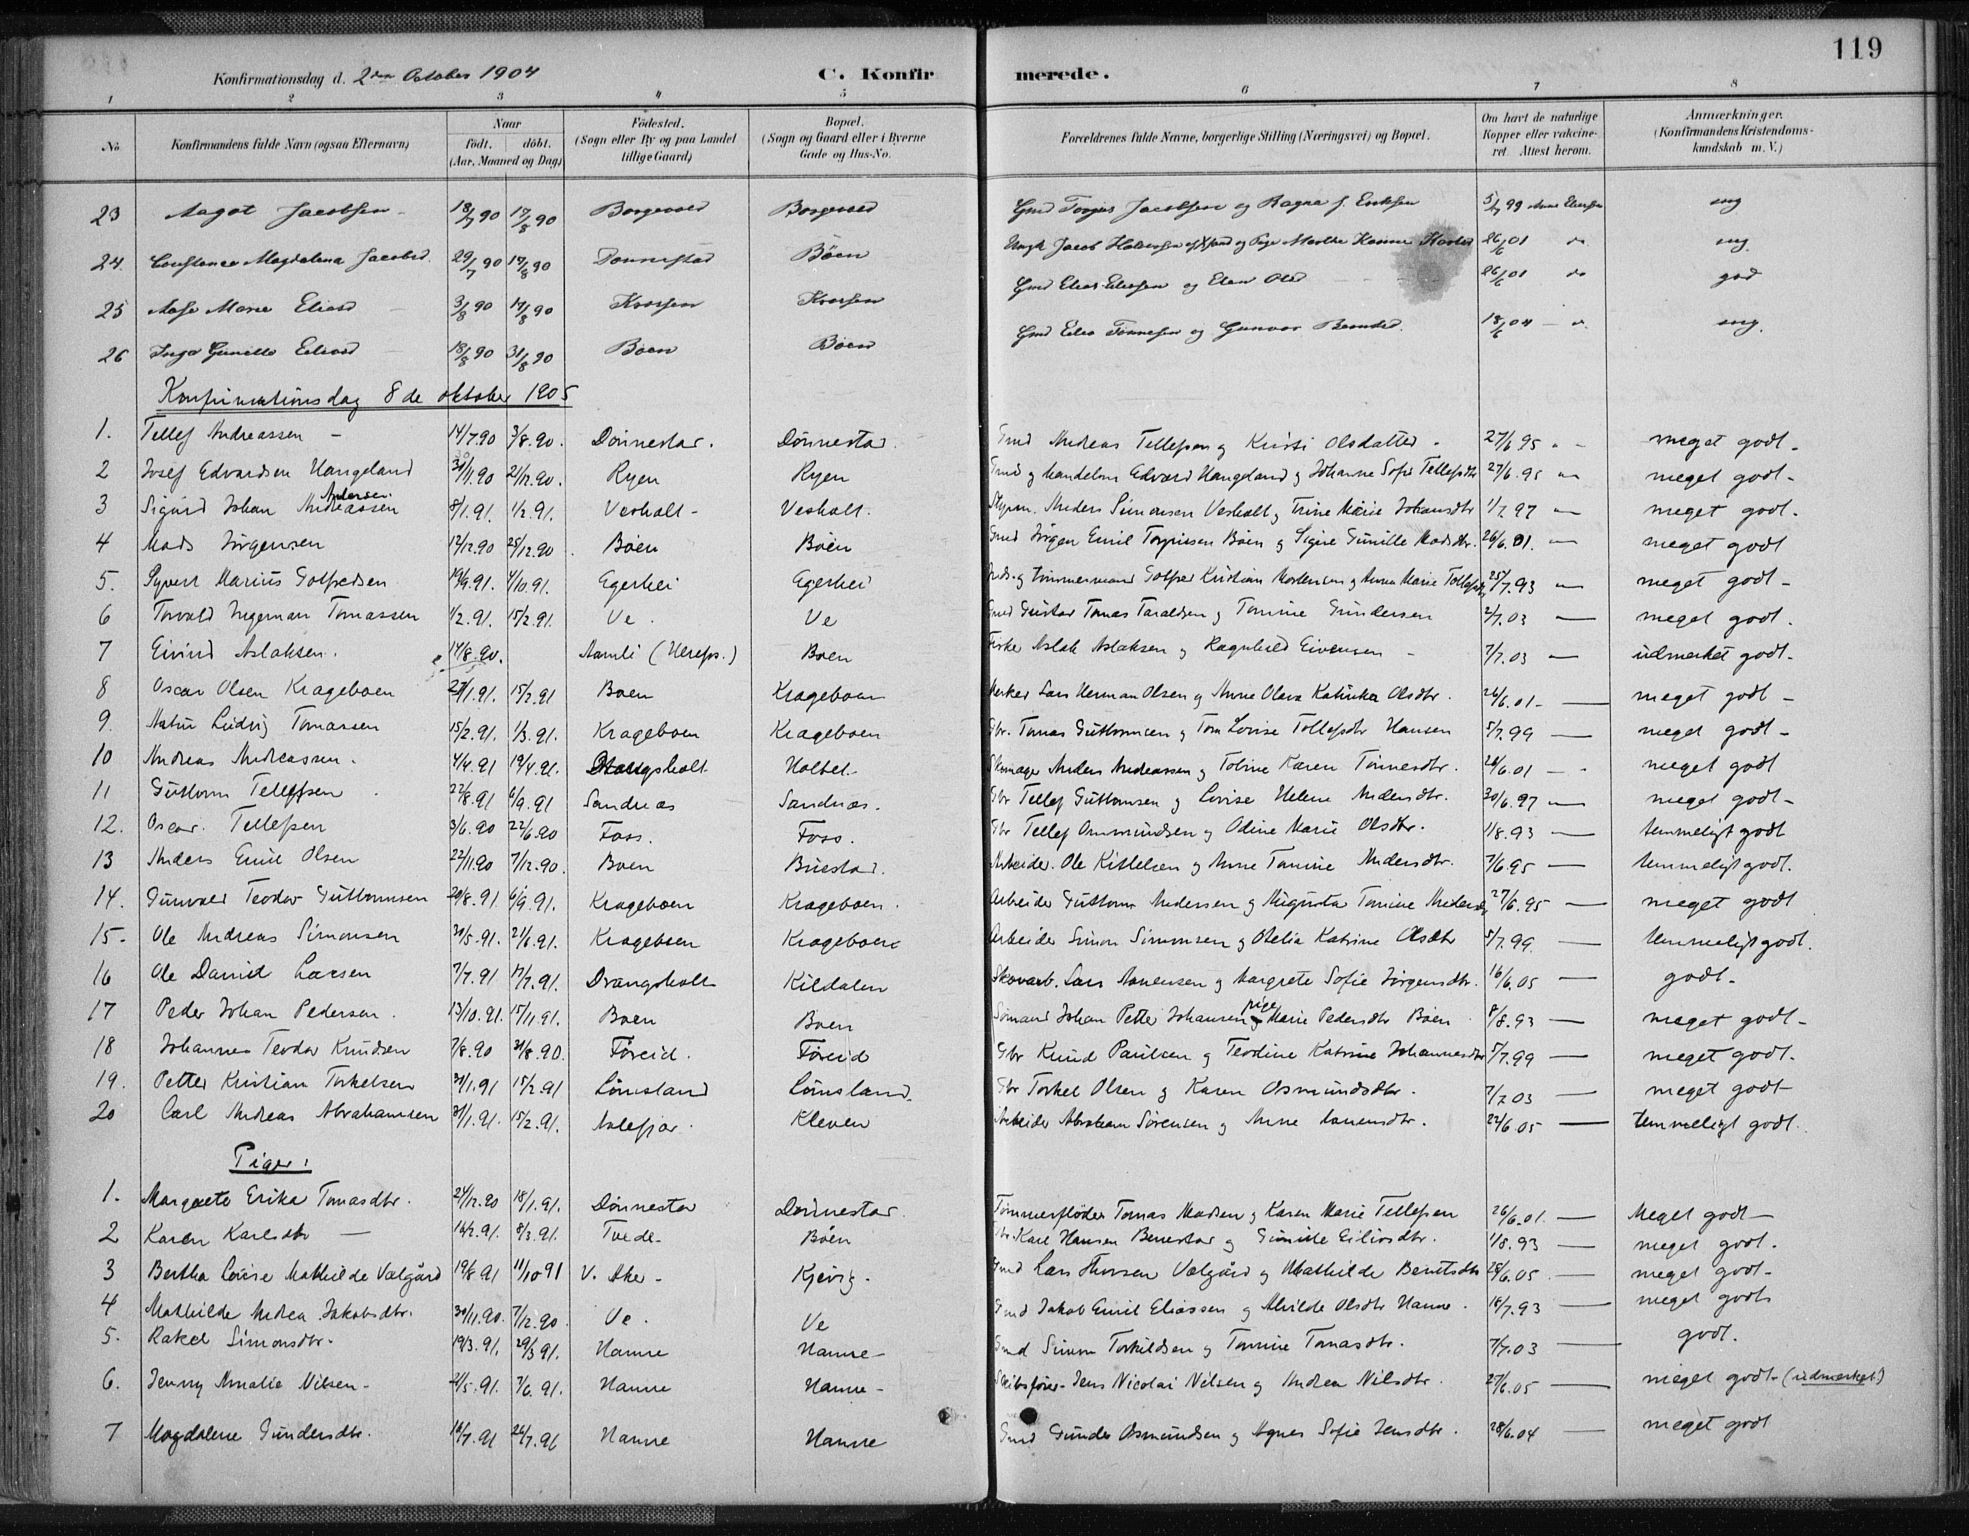 119
Konfirmationsdag d. 2den October 1904 C. Konfirmerede.
1 2 3 4 5 6 7 8
No Konfirmandens fulde Navn (ogsaa Efternavn) Naar født. døbt. (Aar, Maaned og Dag) Fødested. (Sogn eller By og paa Landet tillige Gaard) Bopæl. (Sogn og Gaard eller i Byerne Gade og Hus-No. Forældrenes fulde Navne, borgerlige Stilling (Næringsvei) og Bopæl. Om havt de naturlige Kopper eller vakcineret. Attest herom. Anmærkninger. (Konfirmandens Kristendomskundskab m. V.)
23 Aagot Jacobsen 18/7 90 17/8 90 Jacobsen og Ragna f. Eriksen 5/7 99 mg
24 Constance Magdalena Jacobsd. 29/7 90 17/8 90 Dønnestad Bøen 26/6 01 do mg
25 Aase Marie Eliasd 3/8 90 17/8 90 Gmd Elias Eliesen og Elen Olsd 26/6 01 do god
26 Inga Gunille 18/8 90 31/8 90 Bøen Bøen Gmd Tønnesen og Gunvor 18/6 04 mg.
Konfirmationsdag 8de oktober 1905
1. Tellef Andreassen 14/7.90 3/8.90. Dønnestar. Dønnestad. Gmd Andreas Tellefsen og Kristi Olsdatter 27/6 95 meget godt
2 Josef Edvardsen Haugeland 30/11.90 21/12.90. Ryen Ryen Gmd og Edvard Haugeland og Johanne Sofie Tellefsdtr 27/6.95 meget godt
3 Sigurd Johan Andreassen Andersen 8/1.91. 1/2.91. Vesholt Vesholt. Styrm. Anders Simonsen Vesholt og Trine Marie Johansdtr 1/7 97 meget godt.
4 Mads Jørgensen 12/12.90 25/12.90 Bøen Bøen Gmd Jørgen Emil Torgiussen Bøen og Signe Gunille Madsdtr. 26/6.01. meget godt
5. Syvert Marius Gotfredsen 19/9.91. 4/10.91. Egerhei Egerhei Tømmermand Gotfred Kristian Mortensen og Anna Marie Tellefsdtr 25/7.93 meget godt
6 Torvald Ingeman Tomassen 1/2.91. 15/2.91. Ve. Ve Gmd Gustav Tomas Taraldsen og Tomine Gundersen 2/7.03 meget godt.
7 Eivind Aslaksen. 14/8.90. Aamli (Herefos.) Boen Aslak Aslaksen og Ragnhild Eivensen 7/7.03 udmerket godt.
8 Oscar Olsen Krageboen 27/1.91. 15/2.91 Boen Krageboen Lars Herman Olsen og Anne Olava Katinka Olsdtr. 26/6.01 meget godt
9. Ludvig Tomassen 15/2.91. 1/3.91. Krageboen Krageboen Gbr. Tomas Guttormsen og Tom Lovise Tellefsdtr Hansen 5/7.99 meget godt
10 Andreas Andreassen. 4/4.91 19/4.91. Drangsholt Holtet Skomager Anders Andreassen og Tobine Karen Tønnesdtr. 26/6.01 meget godt
11 Guttorm Tellefsen 22/8.91 6/9.91 Sandnæs Sandnæs. Gbr Tellef Guttormsen og Lovise Helene Andersdtr. 30/6.97 meget godt
12. Oscar. Tellefsen 3/6.90 22/6.90 Foss. Foss. Gbr Tellef Ommundsen og Odine Marie Olsdtr. 1/8.93 temmeligt godt
13 Anders Emil Olsen 22/11.90 7/12.90. Boen Buestad. Arbeider. Ole Kittelsen og Anne Tomine Andersdtr. 7/6.95 temmeligt godt.
14. Gunvald Teodor Guttormsen 20/8.91 6/9.91. Krageboen Krageboen. Arbeider Guttorm Andersen og Augusta Tomine Andersdtr 27/6.95 meget godt
15. Ole Andreas Simonsen 30/5.91. 21/6.91. Krageboen Krageboen Arbeider Simon Simonsen og Otelia Katrine Olsdtr 5/7.99. temmeligt godt.
16 Ole Daniel Larsen 7/7.91 17/7.91. Drangsholt Kildalen Skovarb. Lars Aanensen og Margrete Sofie Jørgensdtr. 16/6.05 godt.
17 Peder Johan Pedersen. 13/10.91. 15/11 91. Boen Boen Sømand Johan Petter Johansen og pige Marie Pedersdtr Boen 8/8.93 meget godt
18 Johannes Teodor Knudsen 7/8.90 31/8.90. Føreid. Føreid Gbr Knud Paulsen og Teodine Katrine Johannesdtr 5/7.99 meget godt.
19. Petter Kristian Torkelsen 30/1.91 15/2.91 Lønsland Lønsland. Gbr Torkel Olsen og Karen Osmundsdtr. 7/7 03 meget godt
20 Carl Andreas Abrahamsen 31/1.91. 15/2.91. Aalefjær. Kleven Arbeider Abraham Sørensen og Anne Aanensdtr. 22/6.05 temmeligt godt.
Piger:
1. Margrete Erika Tomasdtr. 24/12.90 18/1.91. Dønnestad Dønnestad. Tømmerfløder Tomas Madsen og Karen Marie Tellefsen 26/6.01. Meget godt
2 Karen Karlsdtr 16/2.91. 8/3.91. Tvede Bøen Gbr. Karl Hansen Benestad og Gunille Eilivsdtr. 1/8.93 meget godt.
3 Bertha Lovise Mathilde Vælgård 19/8 91 11/10 91 V. Aker Kjevig. Gmd Lars Thorsen Vælgård og Mathilde Berntsdtr 28/6.05 meget godt
4 Mathilde Andrea Jakobsdtr. 30/11.90. 7/12.90. Ve. Ve Gmd Jakob Emil Eliassen og Alvilde Olsdtr Hamre. 18/7.93 meget godt
5. Rakel Simonsdtr. 19/3.91. 29/3 91. Hamre Hamre Gmd Simon Torkildsen og Tomine Tomasdtr. 7/7.03 godt.
6. Jenny Amalie Nilsen 2/5.91. 7/6.91. Hamre Hamre Skibsfører Jens Nicolai Nilsen og Andrea Nilsdtr. 27/6.05 meget godt (udmerket)
7 Magdalene Gundersdtr. 16/7.91 26/7.91 Hamre Hamre Gmd Gunder Osmundsen og Agnes Sofie Jensdtr. 28/6.04 meget godt